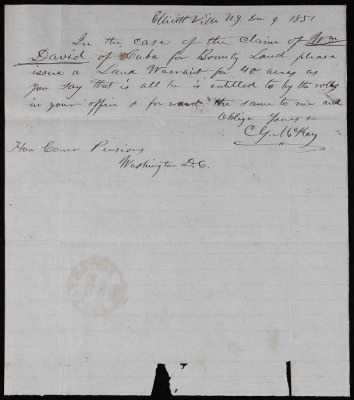 Ellicottville N.Y. Dec 9 1851
In the case of the claim of Wm
David of Cuba for Bounty Land please
issue a Land Warrant for 40 acres as
you say that is all he is entitled to by the rolls
in your office & forward the same to me and
Oblige Yours &c
C. G. McKey
Hon Comr Pensions
Washington D.C.